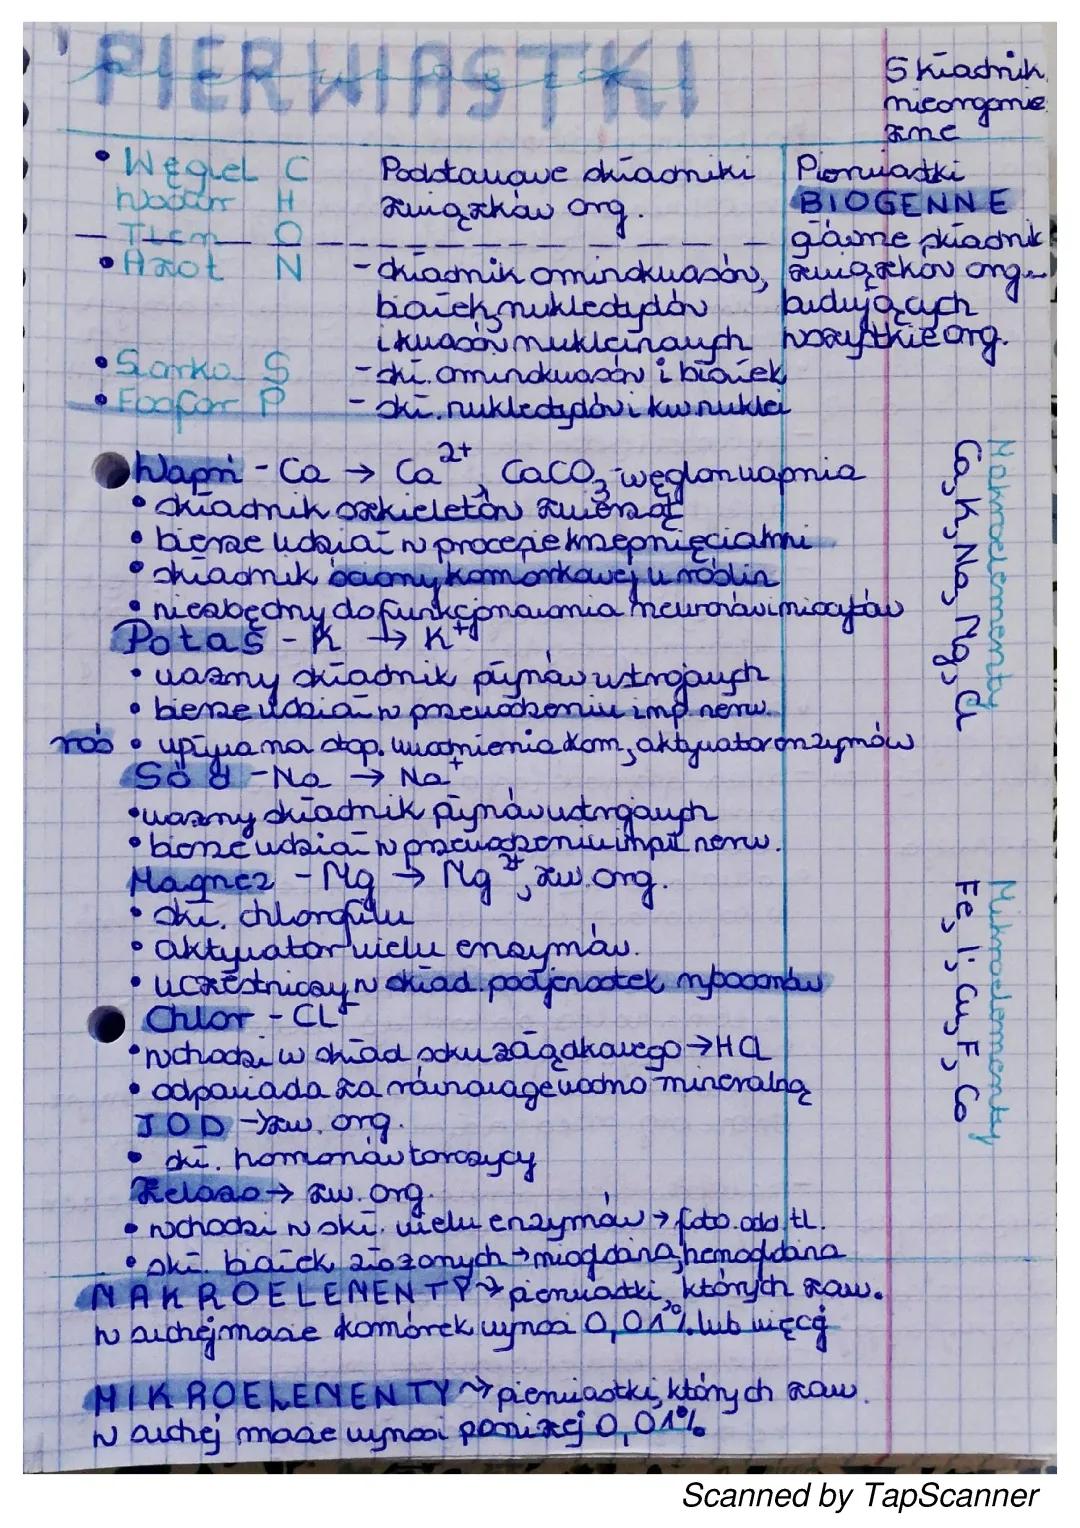 PIERWIASTKI
Składnik
nieorgani
czne
• Węgiel C Podstawowe składniki
Wodór H związków org.
Tlen O
• Azot N - składnik aminokwasów,
białek, nukleotydów
i kwasów nukleinowych
• Siarka S - skł. aminokwasów i białek
• Fosfor P - skł. nukleotydów i kw nuklei
Pierwiastki
BIOGENNE
główne składnik
związków org.
budujących
wszystkie org.
Wapń - Ca → Ca²⁺, CaCO₃ - węglan wapnia
• składnik szkieletów zwierząt
• bierze udział w procesie krzepnięcia krwi
• składnik ściany komórkowej u roślin
• niezbędny do funkcjonowania neuronów i miocytów
Potas - K → K⁺
• ważny składnik płynów ustrojowych
• bierze udział w przewodzeniu imp. nerw.
roś • wpływa na stop. uwodnienia kom, aktywator enzymów
Sód - Na → Na⁺
• ważny składnik płynów ustrojowych
• bierze udział w przewodzeniu impul nerw.
Magnez - Mg → Mg²⁺, zw. org.
• skł. chlorofilu
• aktywator wielu enzymów.
• uczestniczy w skład. podjenostek rybosomów
Chlor - CL⁻
• wchodzi w skład soku żołądkowego → HCl
• odpowiada za równowagę wodno mineralną
JOD → zw. org.
• skł. hormonów tarczycy
Żelazo → zw. org.
• wchodzi w skł. wielu enzymów → foto. odd. tl.
• skł. białek złożonych → mioglobina, hemoglobina
MAKROELEMENTY → pierwiastki, których zaw.
w suchej masie komórek wynosi 0,01% lub więcej
MIKROELEMENTY → pierwiastki, których zaw.
w suchej masie wynosi poniżej 0,01%
Makroelementy
Ca, K, Na, Mg, Cl
Mikroelementy
Fe, I, Cu, F, Co
Scanned by TapScanner